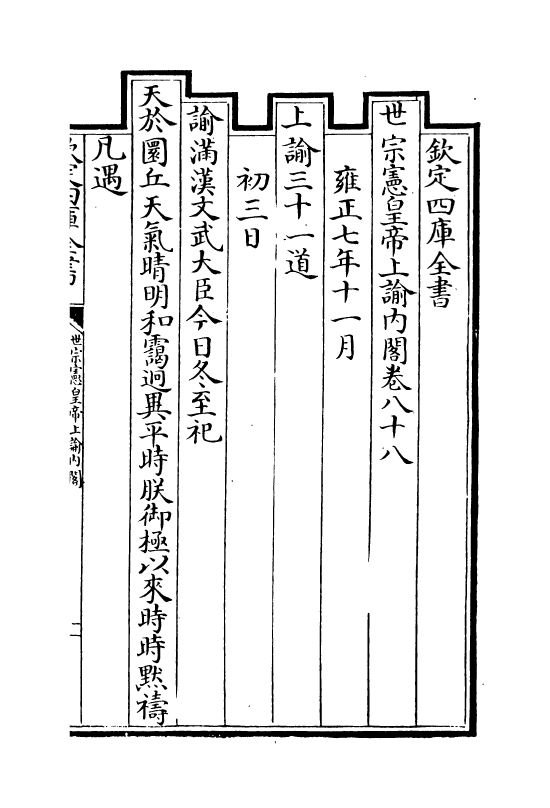 欽定四庫全書
世宗憲皇帝上諭內閣卷八十八
雍正七年十一月
上諭三十一道
初三日
諭滿漢文武大臣今日冬至祀
天於圜丘天氣晴明和靄迥異平時朕御極以來時時黙禱
凡遇
欽定四庫全書
世宗憲皇帝上諭內閣
二